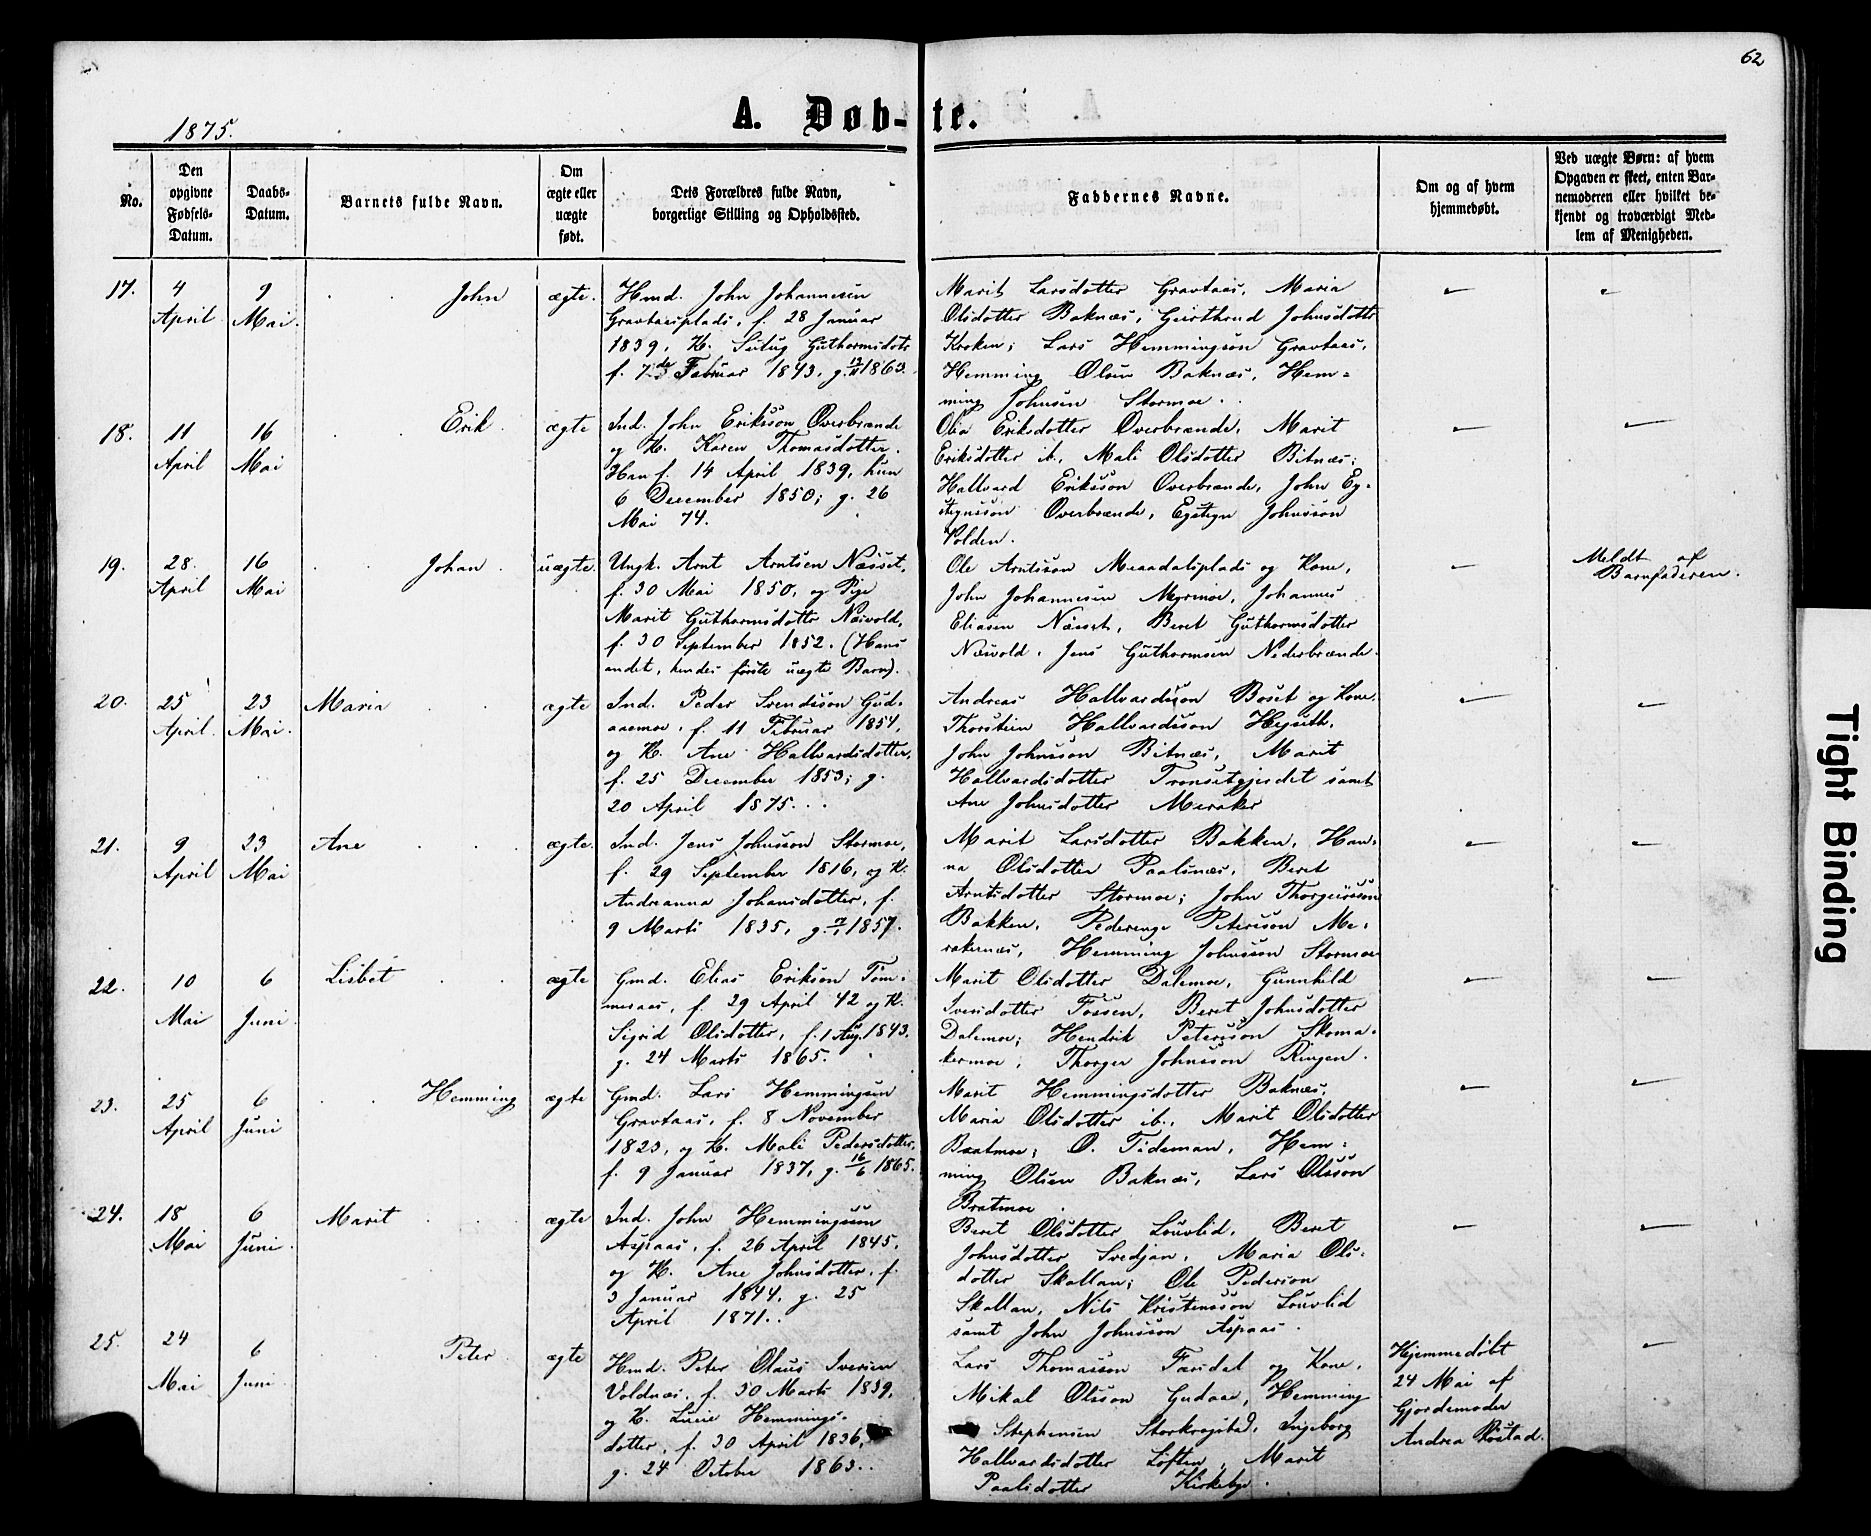 62
1875.
A. Døb-te.
No.
Den opgivne Fødsels-Datum.
Daabs-Datum.
Barnets fulde Navn.
Om ægte eller uægte født.
Dets Forældres fulde Navn, borgerlige Stilling og Opholdssted.
Faddernes Navne.
Om og af hvem hjemmedøbt.
Ved uægte Børn: af hvem Opgaven er skeet, enten Barnemoderen eller hvilket bekjendt og troværdigt Medlem af Menigheden.
17. 4 April 9 Mai. John ægte.
Hmd. John Johannesen
Gravtaasplads, f. 28 Januar
1839, K. Guthormsdotr
f. 7de Februar 1843, g. 1863.
Marit Larsdotter Gravtaas, Maria
Olsdotter Baknæs, Johnsdottr
Kroken; Lars Hemmingson Gravtaas,
Hemming Olsen Baknæs, Hem=
ming Johnsen Stormoe.
18. 11 April 16 Mai Erik ægte
Ind. John Eriksson Overbrænde
og K. Karen Thomasdotter.
Han f. 14 April 1839, hun
6 December 1850; g. 26
Mai 74.
Olia Eriksdotter Overbrænde, Marit
Eriksdotter ib., Mali Olsdotter Bitnæs;
Hallvard Eriksson Overbrænde, John Eg=
steynsson Overbrænde, Egsteyn Johnsson
Volden.
19. 28. April 16 Mai Johan. uægte.
Ungk. Arnt Arntsen Næsset,
f. 30 Mai 1850, og Pige
Marit Guthormsdottr Næsvold,
f. 30 September 1852. (Hans
andet, hendes første uægte Barn).
Ole Arntsson Meaadalsplads og Kone,
John Johannesen Myrmoe, Johannes
Eliasen Næsset, Beret Guthormsdotter
Næsvold, Jens Guthormsen Nederbrænde.
Meldt af
Barnfaderen.
20. 25 April. 23 Mai. Maria ægte
Ind. Peder Svendsson Gud-
aaemoe, f. 11 Februar 1854,
og K. Ane Hallvardsdotter,
f. 25 December 1853; g.
20 April 1875.
Andreas Hallvardsson Boset og Kone.
Thorstein Hallvardsson
John Johnsson Bitnæs, Marit
Hallvardsdotter Tronsetgjerdet samt
Ane Johnsdotter Meraker
21. 9 April 23 Mai Ane ægte.
Ind. Jens Johnsson Stormoe,
f. 29 September 1816, og K.
Andreanna Johansdotter, f.
9 Marts 1835, g. 1857.
Marit Larsdotter Bakken, Han-
na Olsdotter Paalsnæs, Beret
Arntsdotter Stormoe; John Thorgeirsson
Bakken, Pederenge Petersson Me-
rakernæs, Hemming Johnsson Stormoe
22. 10 Mai 6 Juni. Lisbet ægte
Gmd. Elias Erikson Tøm-
meraas, f. 29 April 42 og K.
Sigrid Olsdotter, f. 1 Aug. 1843.
g. 24 Marts 1865.
Marit Olsdotter Dalemoe, Gunnhild
Iversdotter Fossen, Beret Johnsdotter
Dalemoe; Hendrik Petersson Skoma-
kermoe, Thorger Johnsson Ringen.
23. 25 April 6 Juni Hemming ægte
Gmd. Lars Hemmingsen
Gravtaas, f. 8 November
1823, og K. Mali Pedersdotter,
f. 9 Januar 1837, g. 16/6 1865.
Marit Hemmingsdotter Baknæs,
Maria Olsdotter ib., Marit Olsdotter
Bratmoe; O. Tideman, Hem-
ming Olsen Baknæs, Lars Olsson
Bratmoe
24. 18 Mai 6 Juni. Marit ægte
Ind. John Hemmingsen
Aspaas, f. 26 April 1845,
og K. Ane Johnsdotter, f.
3 Januar 1844, g. 25
April 1871.
Beret Olsdotter Louvlid, Beret
Johnsdotter Svedjan, Maria Ols-
dotter Skallan; Ole Pederson
Skallan, Nils Kristensson Louvlid
samt John Johnsson Aspaas.
25. 24 Mai 6 Juni Peter ægte
Hmd. Peter Olaus Iversen
Voldnæs, f. 30 Marts 1839,
og K. Lucie Hemmings-
dotter, f. 30 April 1836,
g. 24 October 1863.
Lars Thomasson Færsdal og Kone,
Mikal Olsson Gudaa, Hemming
Stephensen Storkrogstad, Ingeborg
Hallvardsdotter Løften, Marit
Paalsdotter Kirkeby.
Hjemmedøbt
24 Mai af
Gjordemoder
Andrea Røstad.
Tight Binding